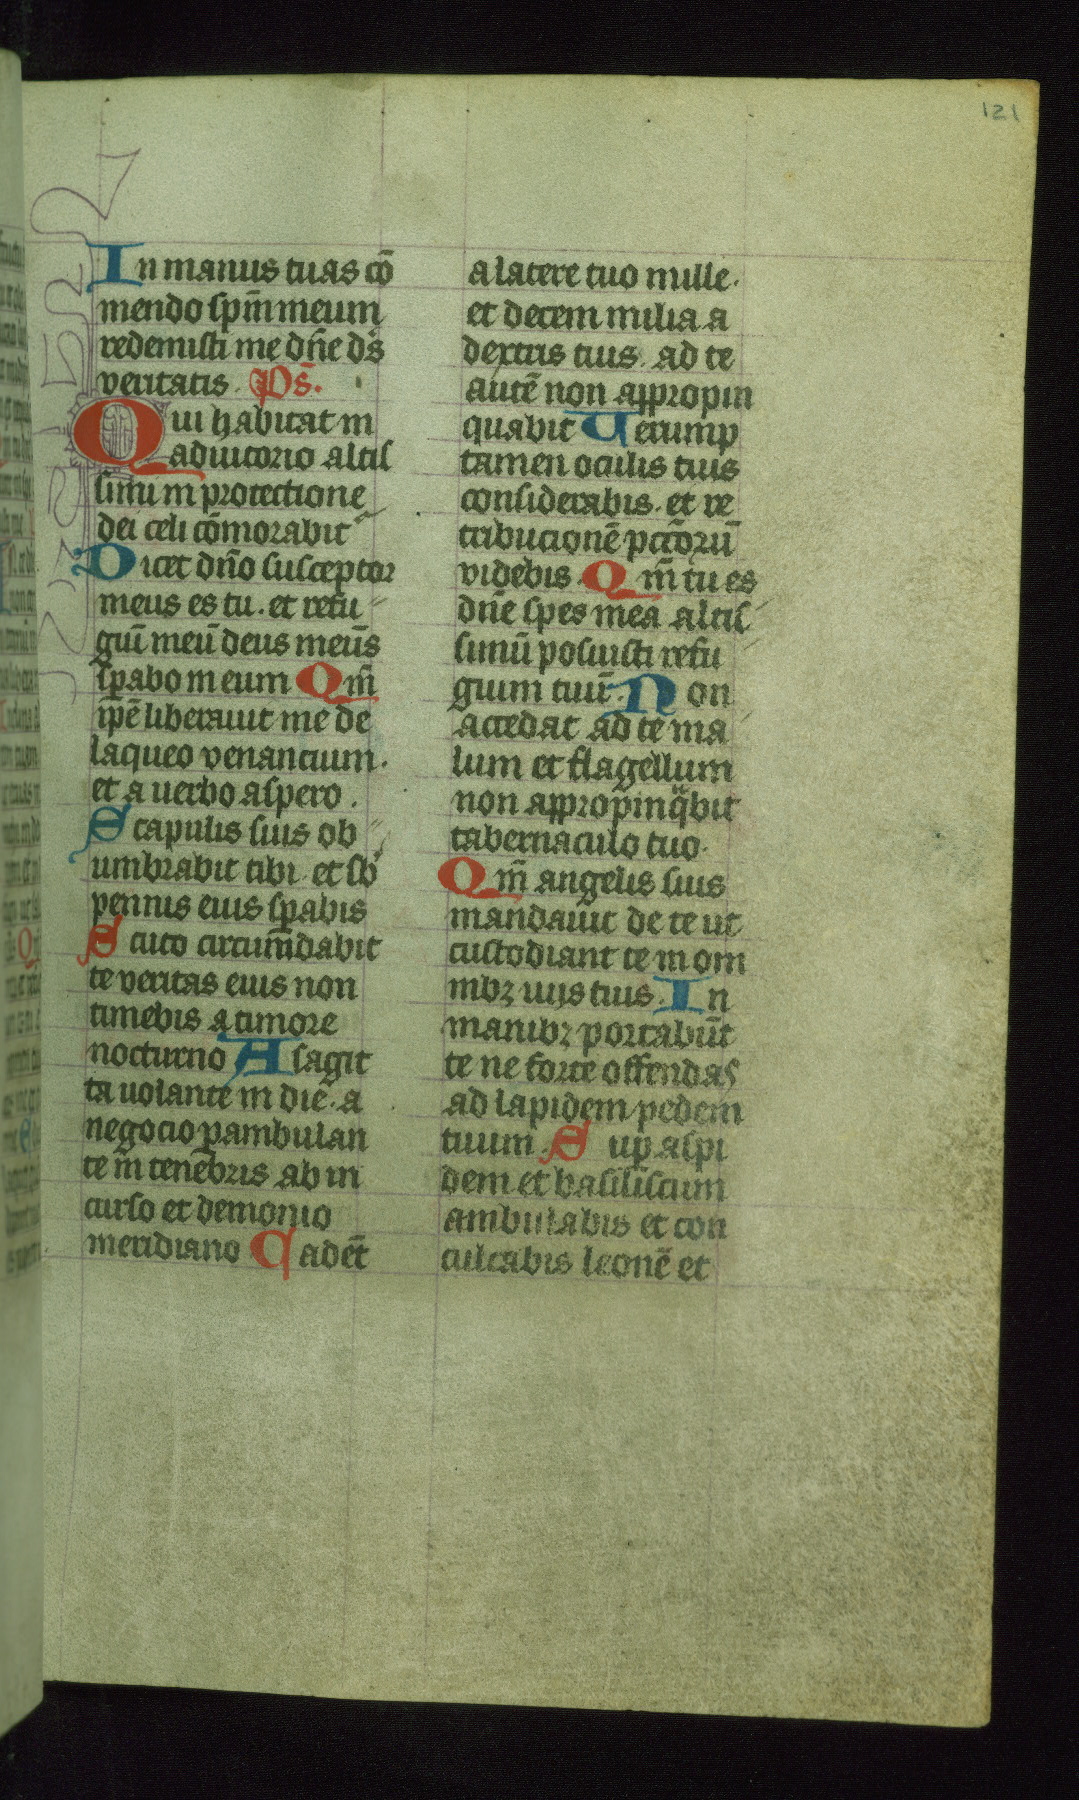 121
In manus tuas cō
mendo spm̄ meum
redemisti me dn̄e ds̄
veritatis. Ps̄.
Qui habitat in
adiutorio altis
simi in protectione
dei celi cōmorabit᷑
Dicet dn̄o susceptor
meus es tu. et refu
giū meū deus meus
sꝑabo in eum Qm̄
ip̄e liberauit me de
laqueo venancium.
et a uerbo aspero.
Scapulis suis ob
umbrabit tibi. et sb
pennis eius sꝑabis
Scuto circum̄dabit
te veritas eius non
timebis a timore
nocturno A sagit
ta uolante in die. a
negocio ꝑambulan
te in tenebris ab in
curso et demonio
meridiano Cadēt
a latere tuo mille.
et decem milia a
dextris tuis. ad te
autē non appropin
quabit Verump
tamen oculis tuis
considerabis. et re
tribucionē pctōrū
videbis. Qm̄ tu es
dn̄e spes mea altis
simū posuisti refu
gium tuū. Non
accedat ad te ma
lum et flagellum
non appropinqͣbit
tabernaculo tuo.
Qm̄ angelis suis
mandauit de te ut
custodiant te in om
nibꝫ uijs tuis. In
manibꝫ portabūt
te ne forte offendas
ad lapidem pedem
tuum. Suꝑ aspi
dem et basiliscum
ambulabis et con
culcabis leonē et